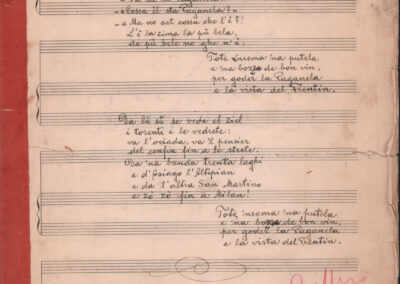 - «Cossa èl sta Paganela?»
- «Ma no sat cossa che l'è?!
L'è la zima la pù bela,
de pù bele no ghe n'è.
Tote insema 'na putela
e 'na bozza de bon vin,
per goder la Paganela
e la vista del Trentin.
Da là sù se vede el ziel
i torenti e le vedrete:
va l'ociada, va 'l pensier
del confin fin a le strete.
Da 'na banda trenta laghi
e d'Asiago l'Altipian
e da l'altra San Martino
e zò zò fin a Milan.
Tote insema 'na putela
e 'na bozza de bon vin,
per goder la Paganela
e la vista del Trentin.